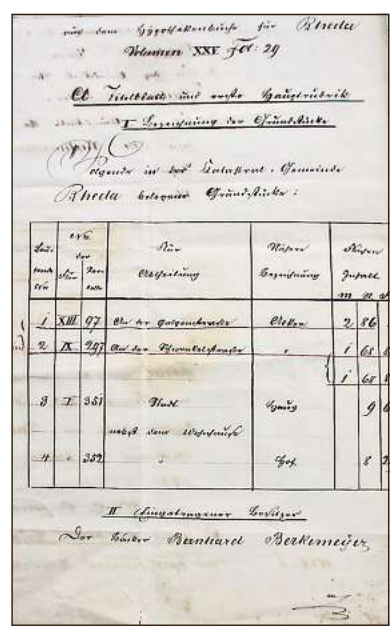 aus dem Hypothekenbuche für Rheda
Volumen XXV Fol: 29
A Titelblatt und erste Hauptrubrik
I Bezeichnung der Grundstücke
Folgende in der Katastral-Gemeinde
Rheda belegene Grundstücke:
Lau-
fende
No
No
der
Flur Par-
celle
Flur
Abtheilung
Nähere
Bezeichnung
Flächen
Inhalt
m R
1 XIII 97 An der Galgenstraße Acker 2 86
2 IX 297 An der Schwenkelstraße " 1 68
1 68
3 I 351 Stadt Haus 9
nebst dem Wohnhause
4 " 352 " Hof 8
II Eingetragener Besitzer
Der Bäcker Bernhard Berkemeyer